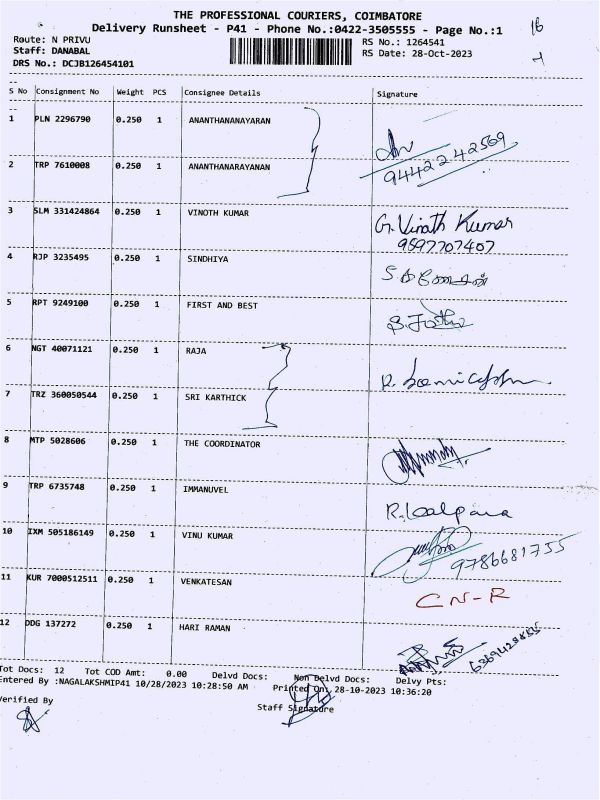 THE PROFESSIONAL COURIERS, COIMBATORE
Delivery Runsheet - P41 - Phone No.:0422-3505555 - Page No.:1
Route: N PRIVU RS No.: 1264541
Staff: DANABAL RS Date: 28-Oct-2023
DRS No.: DCJB126454101
S No Consignment No Weight PCS Consignee Details Signature
1 PLN 2296790 0.250 1 ANANTHANANAYARAN
94422 42569
2 TRP 7610008 0.250 1 ANANTHANARAYANAN
3 SLM 331424864 0.250 1 VINOTH KUMAR G. Vinoth Kumar
9597707407
4 RJP 3235495 0.250 1 SINDHIYA
5 RPT 9249100 0.250 1 FIRST AND BEST
6 NGT 40071121 0.250 1 RAJA
7 TRZ 360050544 0.250 1 SRI KARTHICK
8 MTP 5028606 0.250 1 THE COORDINATOR
9 TRP 6735748 0.250 1 IMMANUVEL R. Kalpana
10 IXM 505186149 0.250 1 VINU KUMAR 9786681755
11 KUR 7000512511 0.250 1 VENKATESAN CN-R
12 DDG 137272 0.250 1 HARI RAMAN
Tot Docs: 12 Tot COD Amt: 0.00 Delvd Docs: Non Delvd Docs: Delvy Pts:
Entered By :NAGALAKSHMIP41 10/28/2023 10:28:50 AM Printed On: 28-10-2023 10:36:20
Verified By Staff Signature